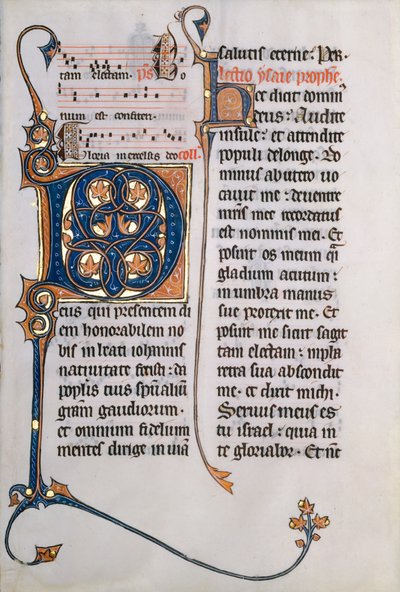 tam electam. ps Bo
num est confiteri.
Gloria in excelsis deo coll.
Deus qui presentem di
em honorabilem no
bis in beati iohannis
nativitate fecisti: da
populis tuis spiritalium
gratiam gaudiorum.
et omnium fidelium
mentes dirige in viam
salutis eterne: Per.
lectio ysaie prophe.
Hec dicit domin
deus: Audite
insule: et attendite
populi de longe. Do
minus ab utero vo
cavit me: de ventre
matris mee recordatus
est nominis mei. Et
posuit os meum quasi
gladium acutum:
in umbra manus
sue protexit me. Et
posuit me sicut sagit
tam electam: in pha
retra sua abscondit
me. et dixit michi.
Servus meus es
tu israel: quia in
te gloriabor. Et nunc